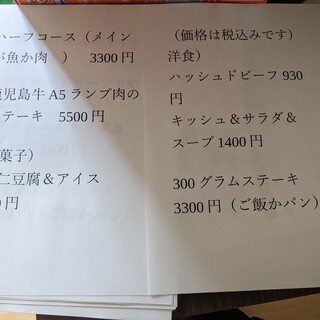 ハーフコース（メイン
が魚か肉　）　3300円
鹿児島牛A5ランプ肉の
ステーキ　5500円
菓子）
仁豆腐＆アイス
0円
（価格は税込みです）
洋食）
ハッシュドビーフ 930
円
キッシュ＆サラダ＆
スープ 1400円
300グラムステーキ
3300円（ご飯かパン）